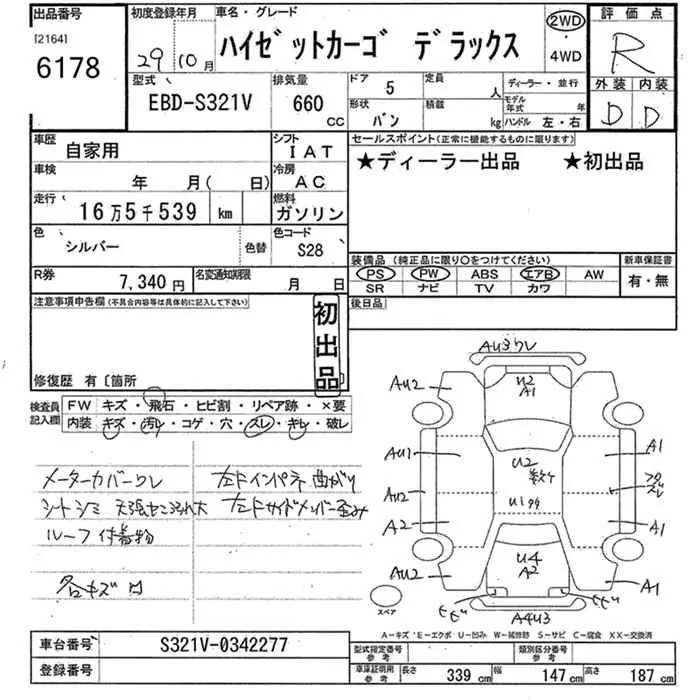 出品番号 初度登録年月 車名・グレード 2WD 評価点
[2164] 29年10月 ハイゼットカーゴ デラックス ・ R
6178 4WD
型式 排気量 ドア 5 定員 人 ディーラー・並行 外装 内装
EBD-S321V 660 CC 形状 バン 積載 kg モデル年式 年 D D
ハンドル 左・右
車歴 自家用 シフト IAT セールスポイント(正常に機能するものに限ります)
車検 年 月( 日) 冷房 AC ★ディーラー出品 ★初出品
走行 16万5千539 km 燃料 ガソリン
色 シルバー 色替 色コード S28
装備品(純正品に限り○をつけてください) 新車保証書
R券 7,340円 名変通知期限 月 日 PS PW ABS エアB AW 有・無
SR ナビ TV カワ
注意事項申告欄(不具合内容等は具体的に記入して下さい) 初出品 後日品
修復歴 有〔箇所
検査員記入欄 FW キズ・飛石・ヒビ割・リペア跡・×要
内装 キズ・汚レ・コゲ・穴・スレ・キレ・破レ
メーターカバーワレ 左Fインパネ曲がり
シートシミ 左Fサイドメンバー歪み
ルーフ付着物
各キズ凹
AU3ワレ
AU2 U2 A1
AU1 U2 A1
AU2 U1
A2 A1
AU2 U4 A2 A1
ヒビ ヒビ
スペア A4U3
A−キズ E−エクボ U−凹み W−補修跡 S−サビ C−腐食 XX−交換済
車台番号 S321V-0342277 型式指定番号 参考 類別区分番号 参考
登録番号 車庫証明用 参考 長さ 339 cm 幅 147 cm 高さ 187 cm